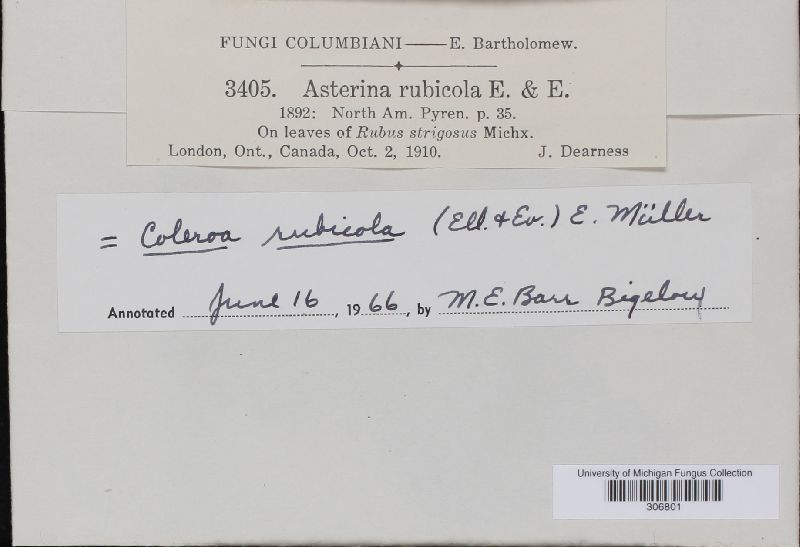 FUNGI COLUMBIANI — E. Bartholomew.
3405. Asterina rubicola E. & E.
1892: North Am. Pyren. p. 35.
On leaves of Rubus strigosus Michx.
London, Ont., Canada, Oct. 2, 1910. J. Dearness
= Coleroa rubicola (Ell. & Ev.) E. Müller
Annotated June 16, 1966, by M. E. Barr Bigelow
University of Michigan Fungus Collection
306801